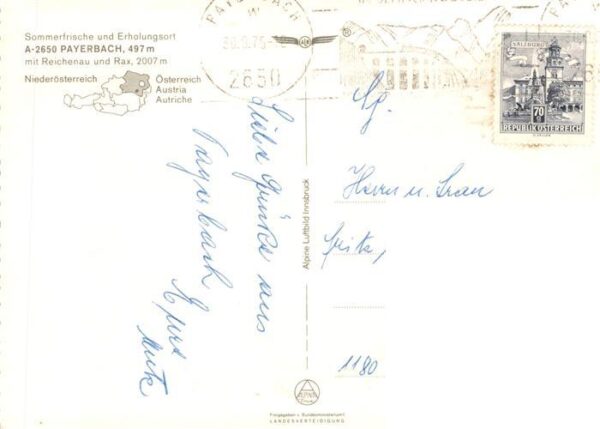 Sommerfrische und Erholungsort
A-2650 PAYERBACH, 497 m
mit Reichenau und Rax, 2007 m
Niederösterreich
Österreich
Austria
Autriche
PAYERBACH
2650
SALZBURG
70
REPUBLIK ÖSTERREICH
Liebe Grüße aus
Payerbach
Alpine Luftbild Innsbruck
Herrn u. Frau
Fritz,
1180
ALPINE
Freigegeben v. Bundesministerium f.
LANDESVERTEIDIGUNG